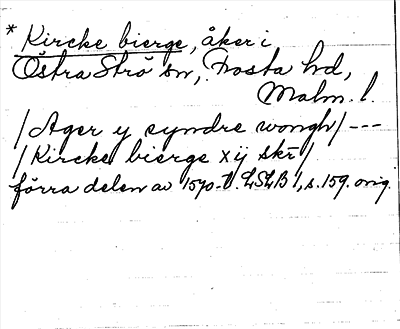 * Kircke bierge, åker i
Östra Strö sn, Frosta hd,
Malm. l.
/Ager y syndre wongh/ ---
/Kircke bierge x ij skr̄/
förra delen av 1570-t. LSLB 1, s. 159. orig.